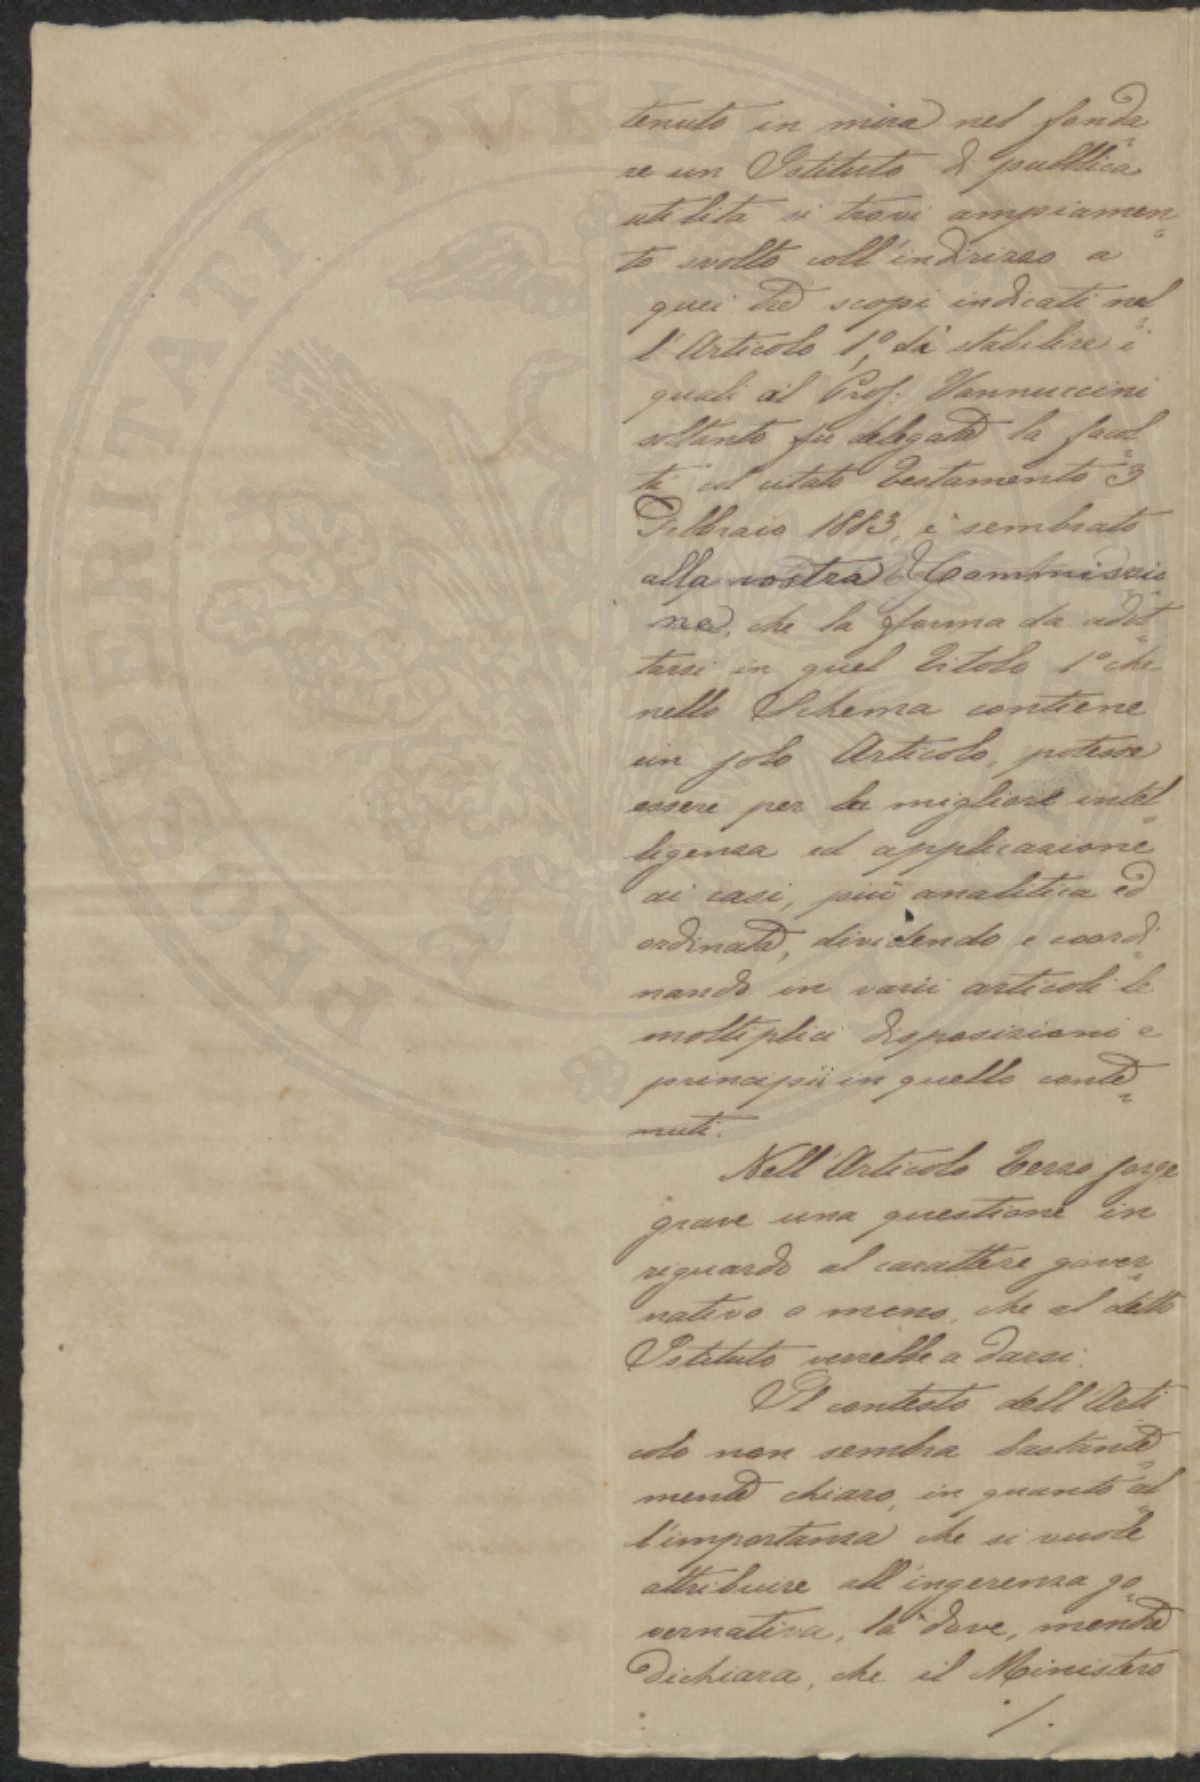 tenuto in mira nel fonda
re un Istituto di pubblica
utilità si trovi ampiamen
te svolto coll'indirizzo a
quei tre scopi indicati nel
l'Articolo 1°, da stabilire i
quali al Prof. Vannuccini
soltanto fu delegata la facol
tà col citato Testamento 3
Febbraio 1883, è sembrato
alla vostra Commissio
ne, che la forma da adot
tarsi in quel Titolo 1° che
nello Schema contiene
un solo Articolo, potesse
essere per la migliore intel
ligenza ed applicazione
ai casi, più analitica ed
ordinata, dividendo e coordi
nando in varii articoli le
molteplici disposizioni e
principii in quello conte
nuti.
Nell'Articolo Terzo sorge
grave una questione in
riguardo al carattere gover
nativo o meno, che al detto
Istituto verrebbe a darsi.
Il contesto dell'Arti
colo non sembra bastante
mente chiaro, in quanto al
l'importanza che si vuole
attribuire all'ingerenza go
vernativa, là dove, mentre
dichiara, che il Ministero
./.
PROSPERITATI PVBL